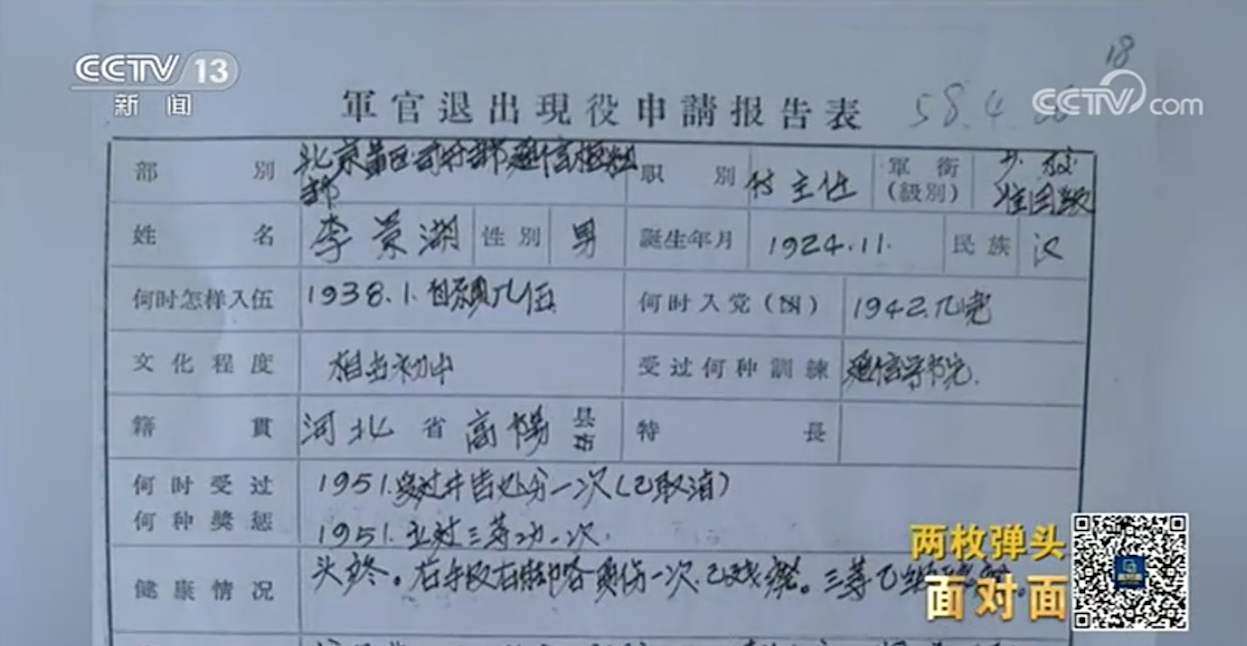 CCTV 13
新闻
CCTV.com
18
軍官退出現役申請报告表
58.4.
部别 北京軍区司令部通信修配部 职别 付主任 軍衔(級別) 少校 准团级
姓名 李景湖 性别 男 誕生年月 1924.11. 民族 汉
何时怎样入伍 1938.1.自願入伍 何时入党(团) 1942.
文化程度 相当初中 受过何种訓練 通信学院.
籍貫 河北省高陽县市 特長
何时受过何种獎惩 1951.受过警告处分一次(已取消)
1951.立过三等功一次.
健康情况 头疼。右手及右 各負伤一次.已残廢。三等乙级
两枚弹头
面对面